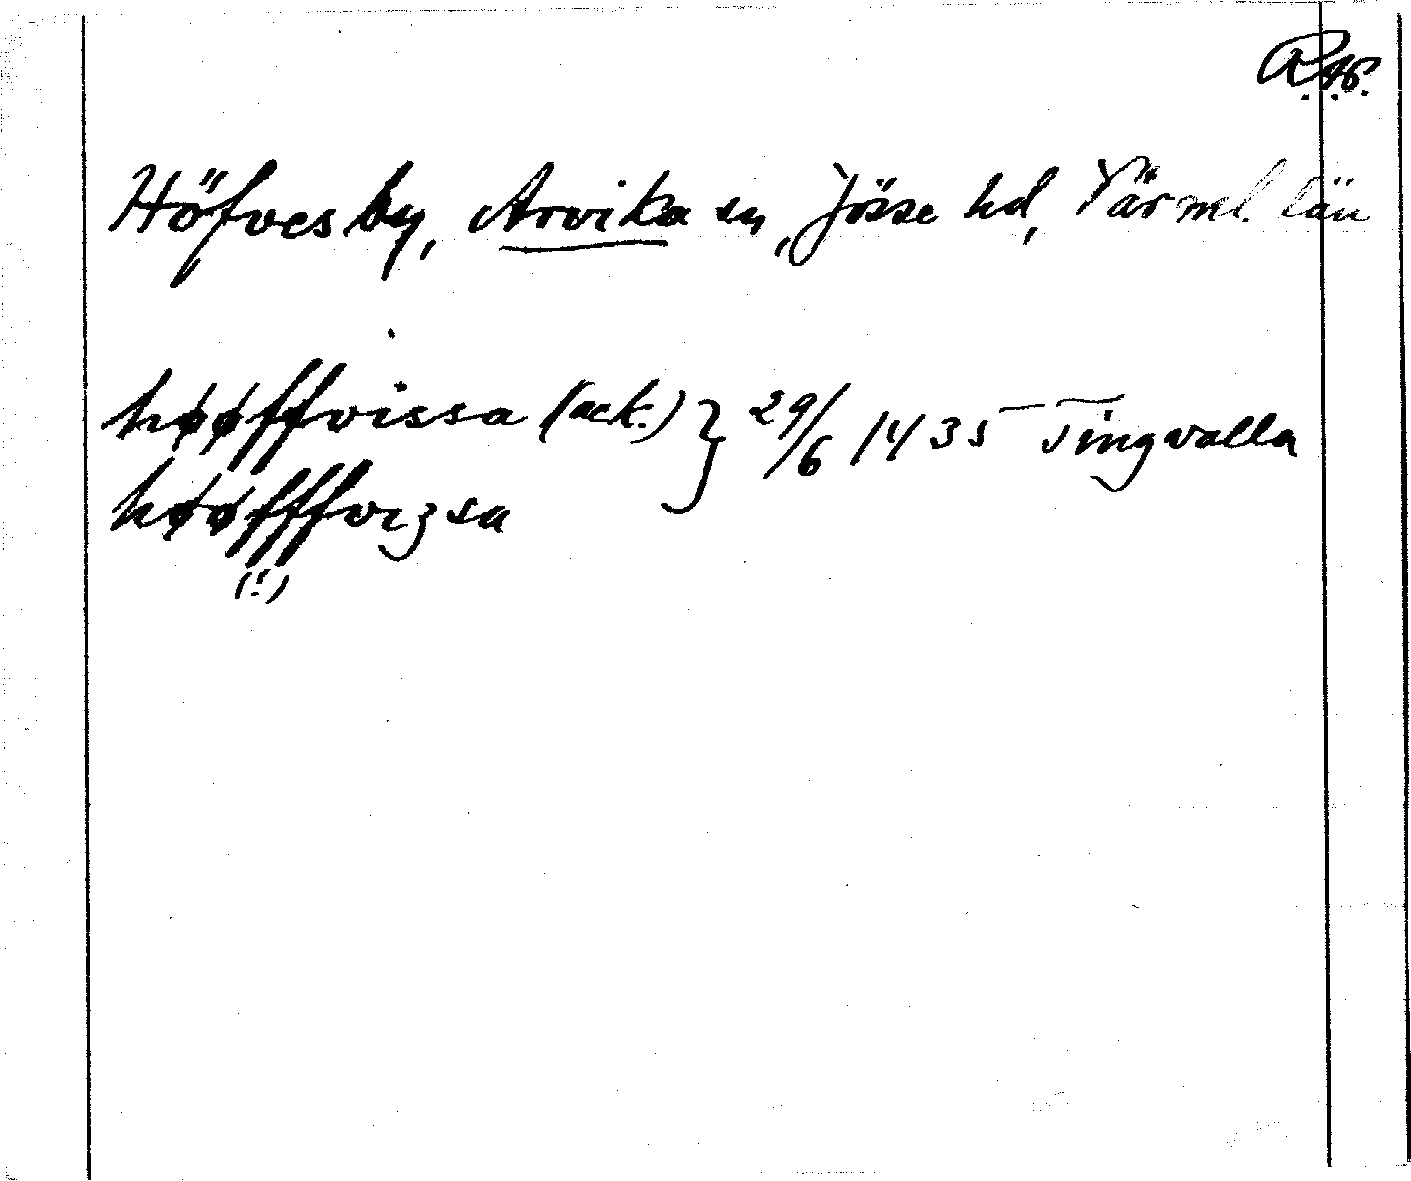 Höfvesby, Arvika sn, Jösse hd, Värml. län
høøffvissa (ack.) } 29/6 1435 Tingvalla
høøfffvizsa
(!)